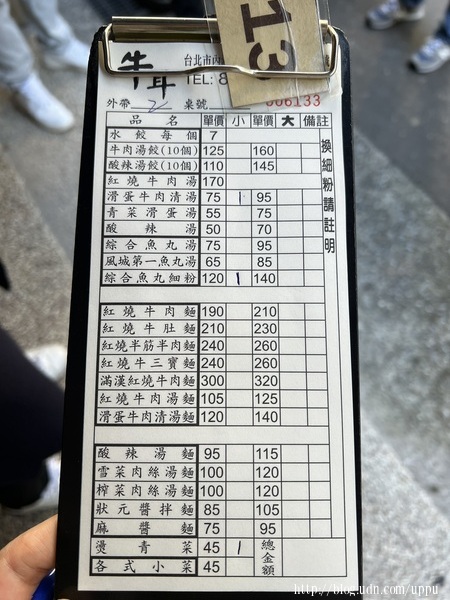 13
台北市內
TEL: 8
外帶 2 桌號 006133
品名 單價 小 單價 大 備註
水餃每個 7
牛肉湯餃(10個) 125 160
酸辣湯餃(10個) 110 145
紅燒牛肉湯 170
滑蛋牛肉清湯 75 1 95
青菜滑蛋湯 55 75
酸辣湯 50 70
綜合魚丸湯 75 95
風城第一魚丸湯 65 85
綜合魚丸細粉 120 1 140
換細粉請註明
紅燒牛肉麵 190 210
紅燒牛肚麵 210 230
紅燒半筋半肉麵 240 260
紅燒牛三寶麵 240 260
滿漢紅燒牛肉麵 300 320
紅燒牛肉湯麵 105 125
滑蛋牛肉清湯麵 120 140
酸辣湯麵 95 115
雪菜肉絲湯麵 100 120
榨菜肉絲湯麵 100 120
狀元醬拌麵 85 105
麻醬麵 75 95
燙青菜 45 1 總金額
各式小菜 45
http://blog.udn.com/uppu